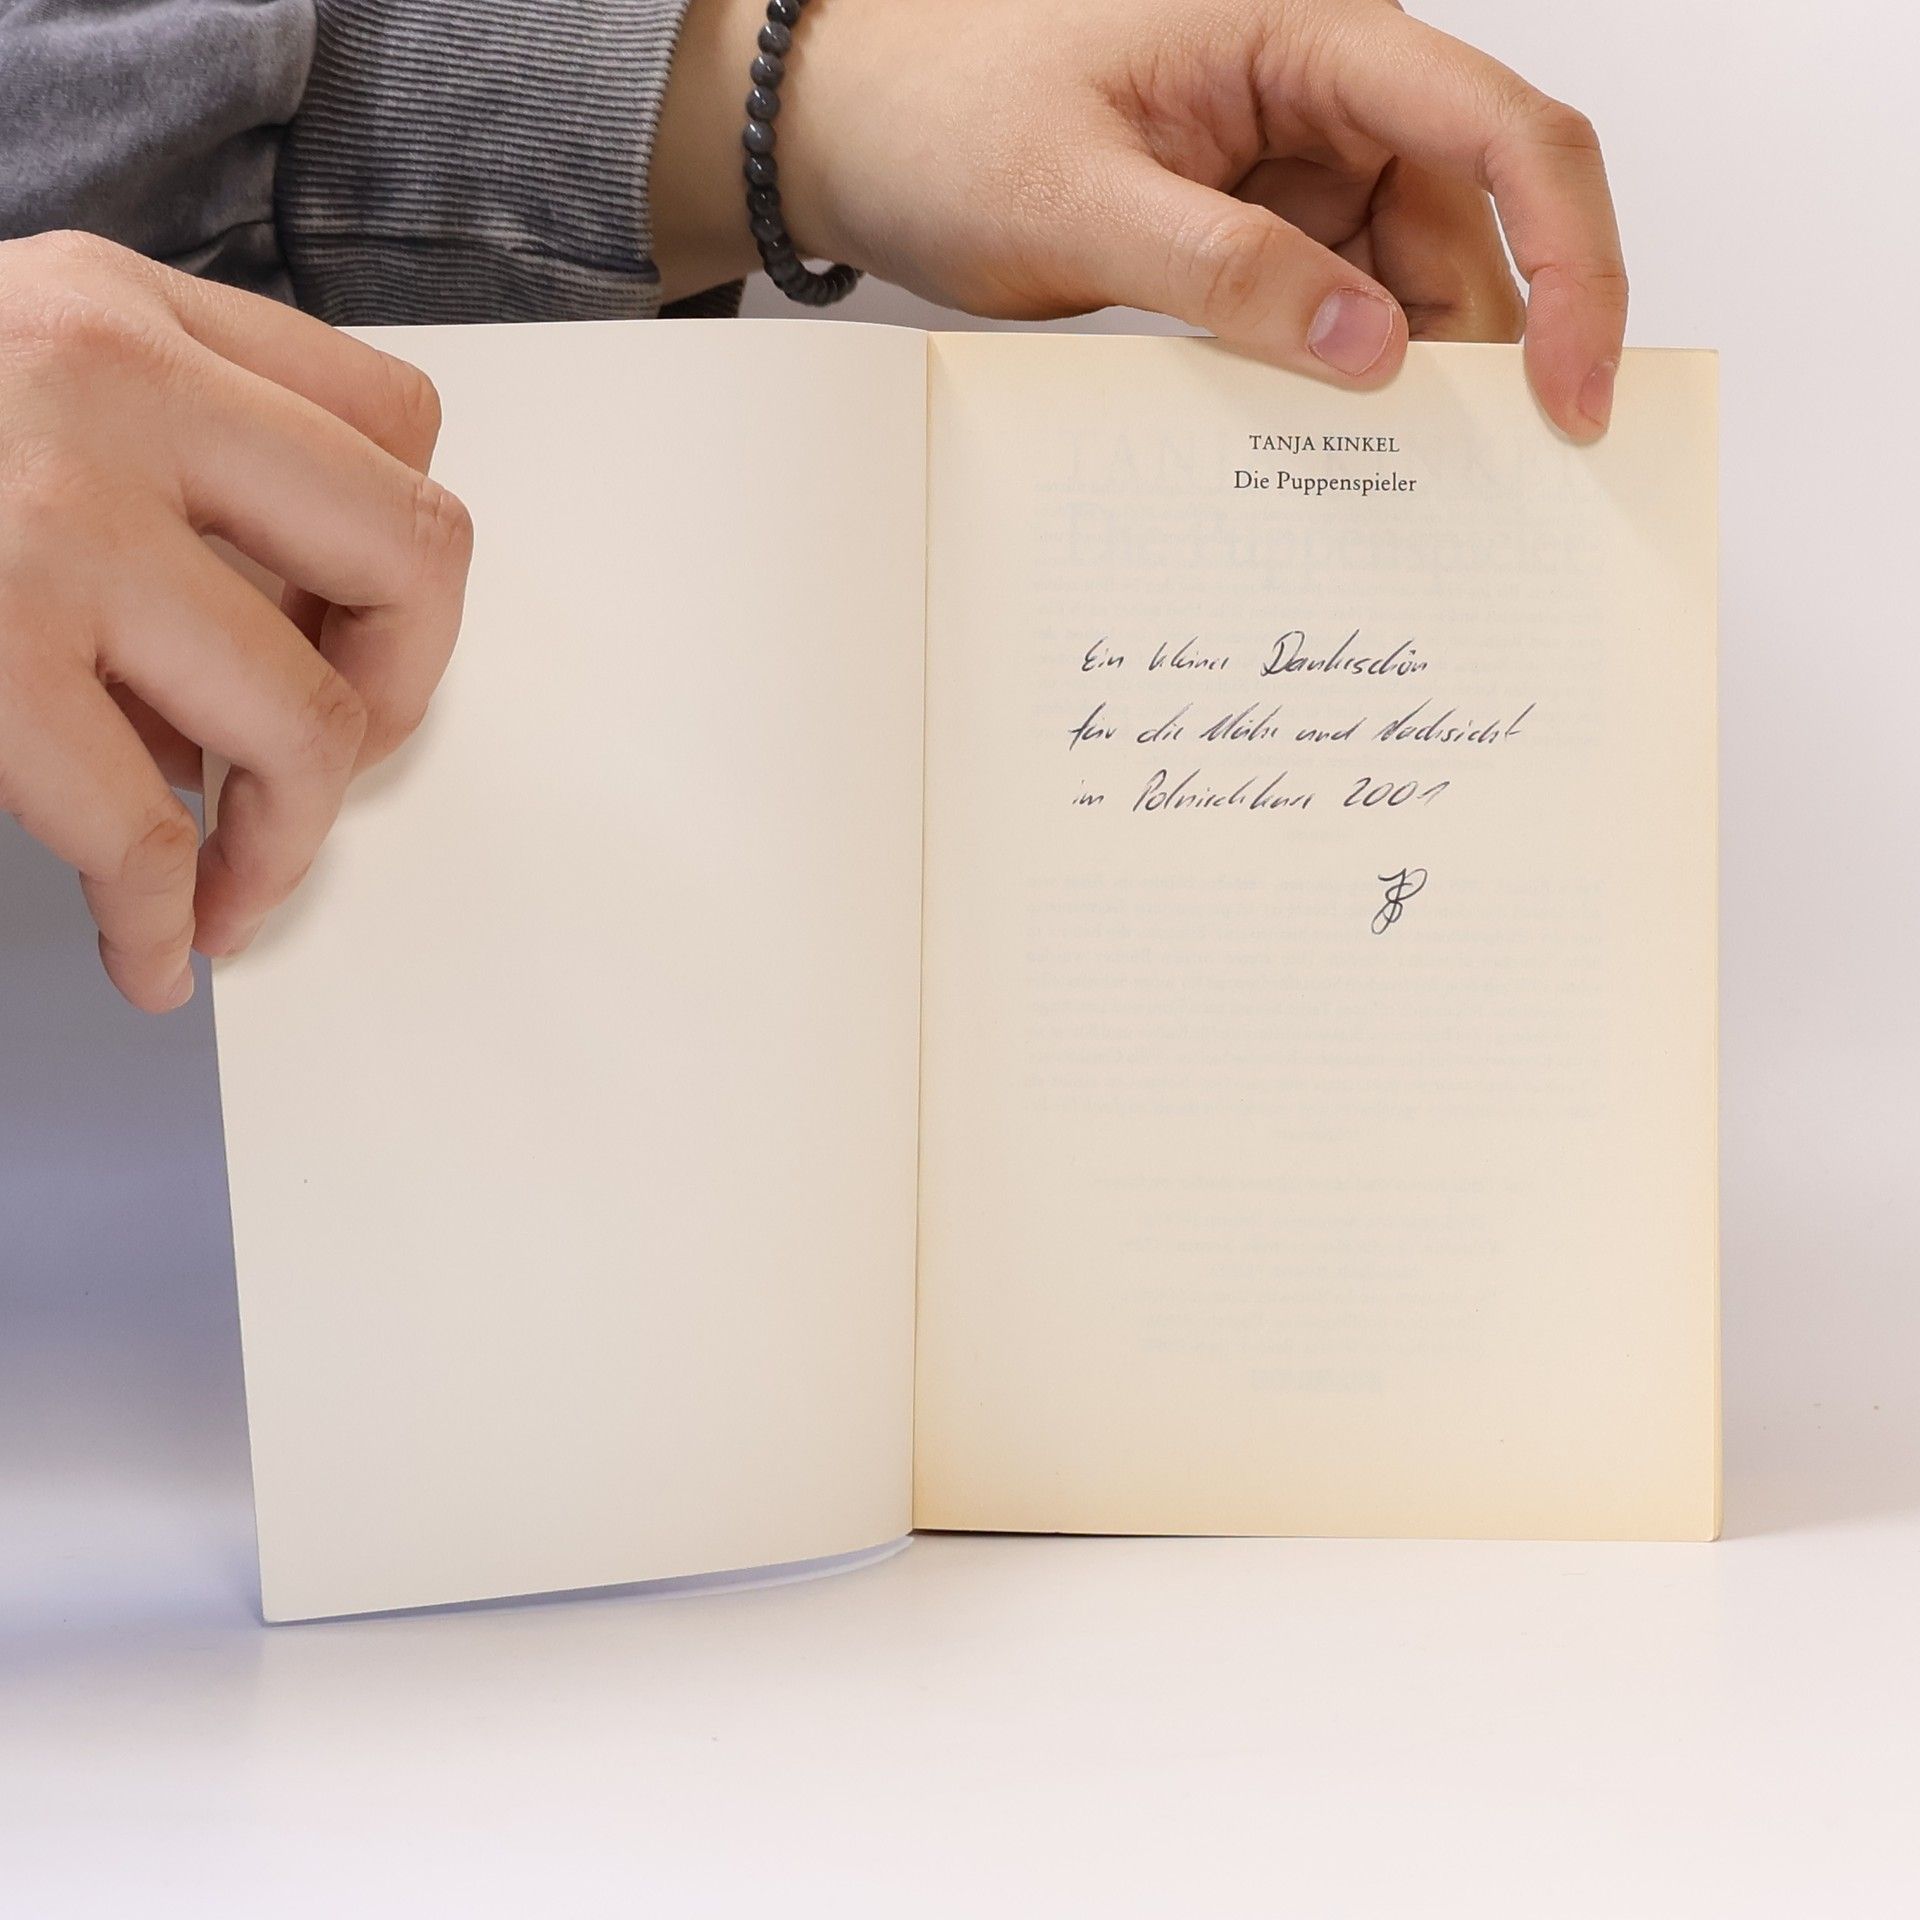 TANJA KINKEL
Die Puppenspieler
Ein kleines Dankeschön
für die Mühe und Nachsicht
im Polnischkurs 2001